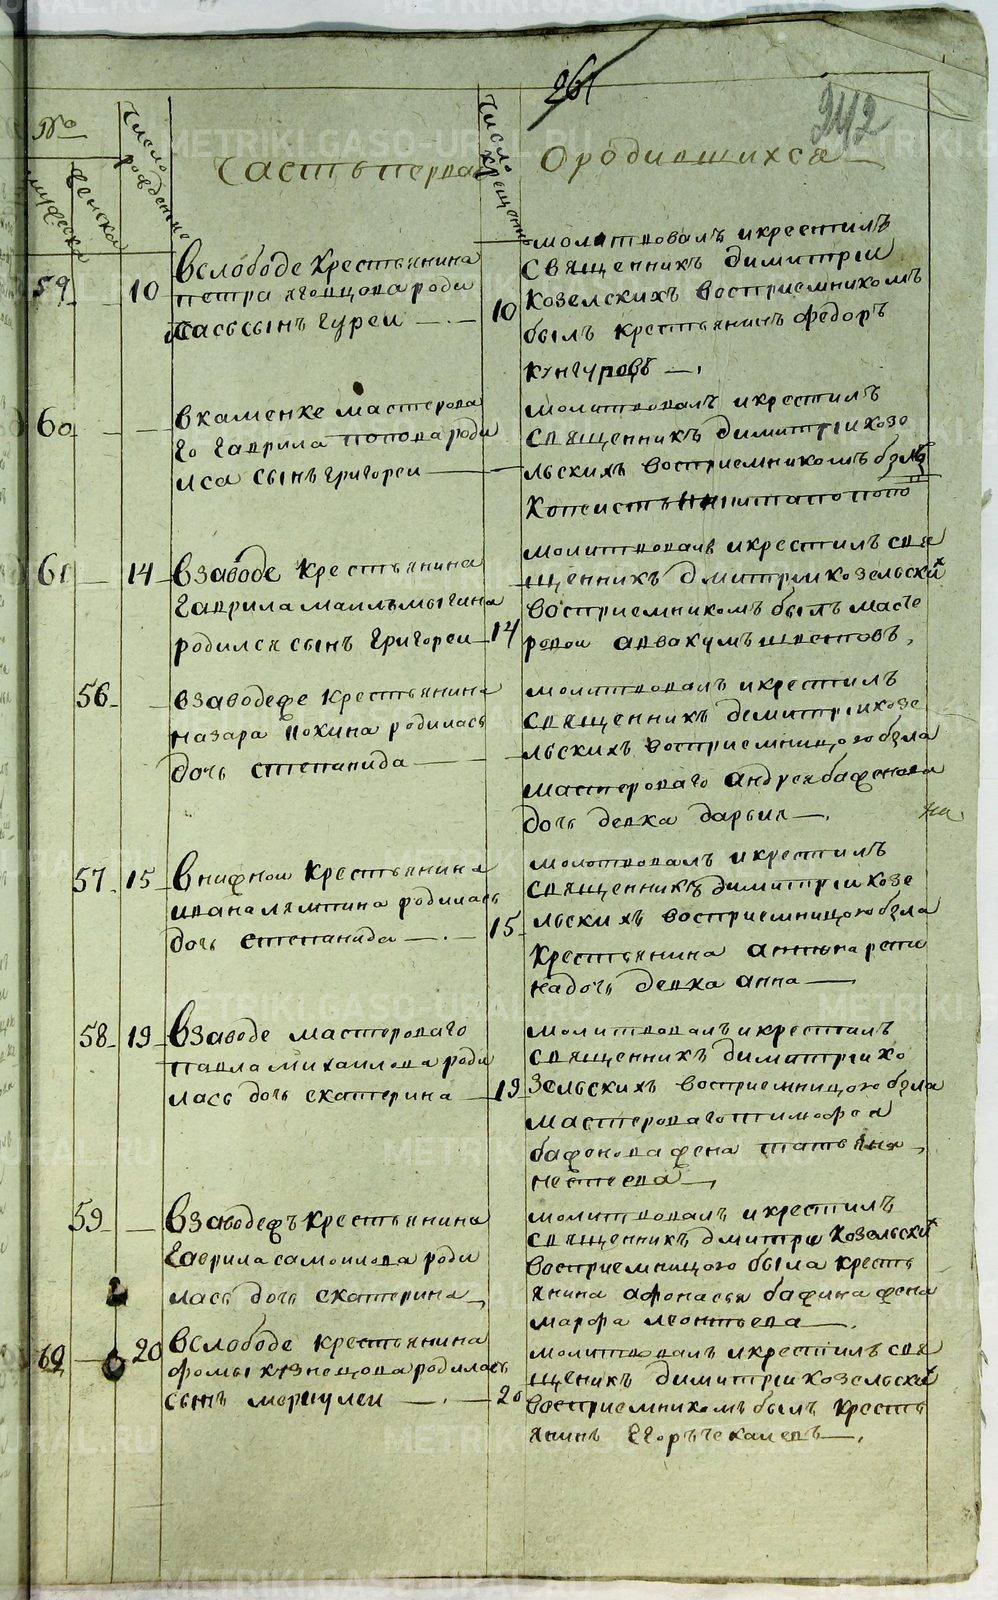 261
242
№
мужеска
женска
Число рождение
Часть первая
Число крещение
О родившихся
59
10
Вслободе Крестьянина
петра яговцова роди
лась сынъ Гуреи
10
молитвовалъ икрестилъ
Священникъ Димитрiи
Козелскихъ Восприемникомъ
былъ крестьянинъ Федоръ
Кунгуровъ
60
вкаменке мастерова
го Гаврила попова роди
лса сынъ Григореи
молитвовалъ икрестилъ
Священникъ Димитрiи козе
льскихъ восприемникомъ былъ
Копеистъ попо
61
14
Взаводе крестьянина
Гаврила маилъмыгина
родился сынъ Григореи
14
молитвовалъ икрестилъ свя
щенникъ Дмитрiи козельскихъ
восприемникомъ былъ масте
ровои аввакумъ шестовъ
56
взаводеже крестьянина
назара Похина родилась
дочь степанида
молитвовалъ икрестилъ
священникъ димитрiи козе
льскихъ восприемницою была
мастероваго Андрея баженова
дочь девка дарья
57
15
Внижнои крестьянина
ивана ляпина родилась
дочь степанида
15
молитвовалъ икрестилъ
священникъ димитрiи козе
льскихъ восприемницою была
Крестьянина
на дочь девка анна
58
19
Взаводе мастероваго
павла михаилова роди
лась дочь екатерина
19
молитвовалъ икрестилъ
священникъ димитрiи ко
зельскихъ восприемницою была
мастероваго тимофея
баженова жена татьяна
59
Взаводежъ крестьянина
Гаврила самоилова роди
лась дочь екатерина
молитвовалъ икрестилъ
священникъ дмитрiи Козельскихъ
восприемницою была кресть
янина афонасья бажина жена
марфа леонтьева
62
20
Вслободе крестьянина
фомы кузнецова родилась
сынъ меркулеи
20
молитвовалъ икрестилъ свя
щеникъ димитрiи козельскихъ
восприемникомъ былъ кресть
янинъ Егоръ чекалевъ